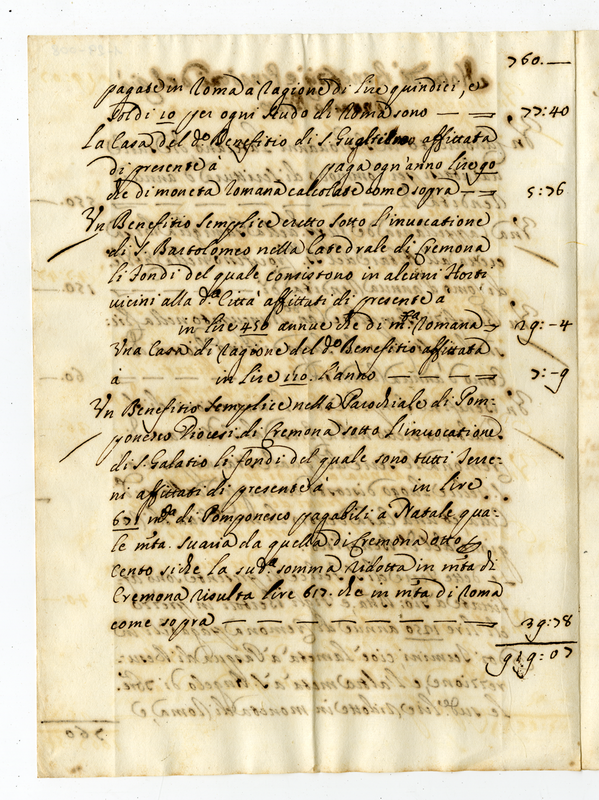 760. —
pagate in Roma à ragione di lire quindici, e
soldi 10 per ogni scudo di Roma sono — = 77:40
La Casa del do Benefitio di S. Guglielmo affittata
di presente à paga ogn'anno lire 90
che di moneta Romana calcolate come sopra — = 5:76
Un Benefitio semplice eretto sotto l'invocatione
di S. Bartolomeo nella Catedrale di Cremona
li fondi del quale consistono in alcuni Horti
vicini alla da Città affittati di presente à
in lire 450 annue che di mta Romana = 29:-4
Una Casa di ragione del do Benefitio affittata
à in lire 110. l'anno — — — = 7:-9
Un Benefitio semplice nella Parochiale di Pom:
ponesco Diocesi di Cremona sotto l'invocatione
di S. Galatio li fondi del quale sono tutti Terre:
ni affittati di presente à in lire
671 mta di Pomponesco pagabili à Natale qua:
le mta. suaria da quella di Cremona otto per
cento si che la suda somma ridotta in mta di
Cremona risulta lire 617. che in mta di Roma
come sopra — — — — — — — 39:78
919:07
760